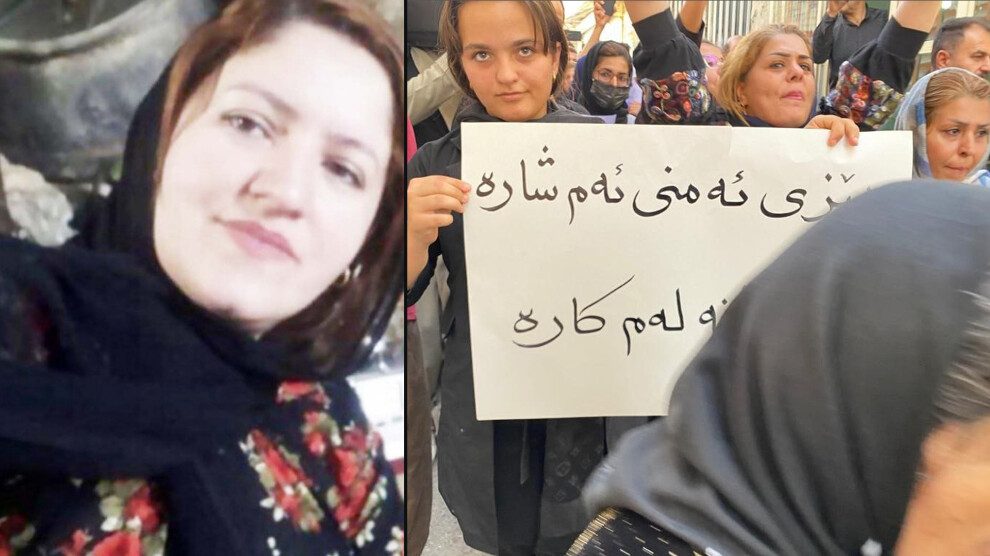 ئەمنی ئەم شارە
لەم کارە